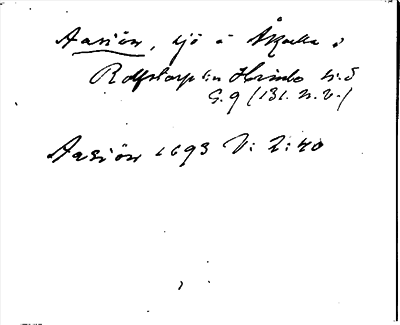 Aasiön, sjö i Åkulla i
Rolfstorp sn Himle h:d
G. 9 (131. n. v.)
Aasiön 1693 V: 2:40